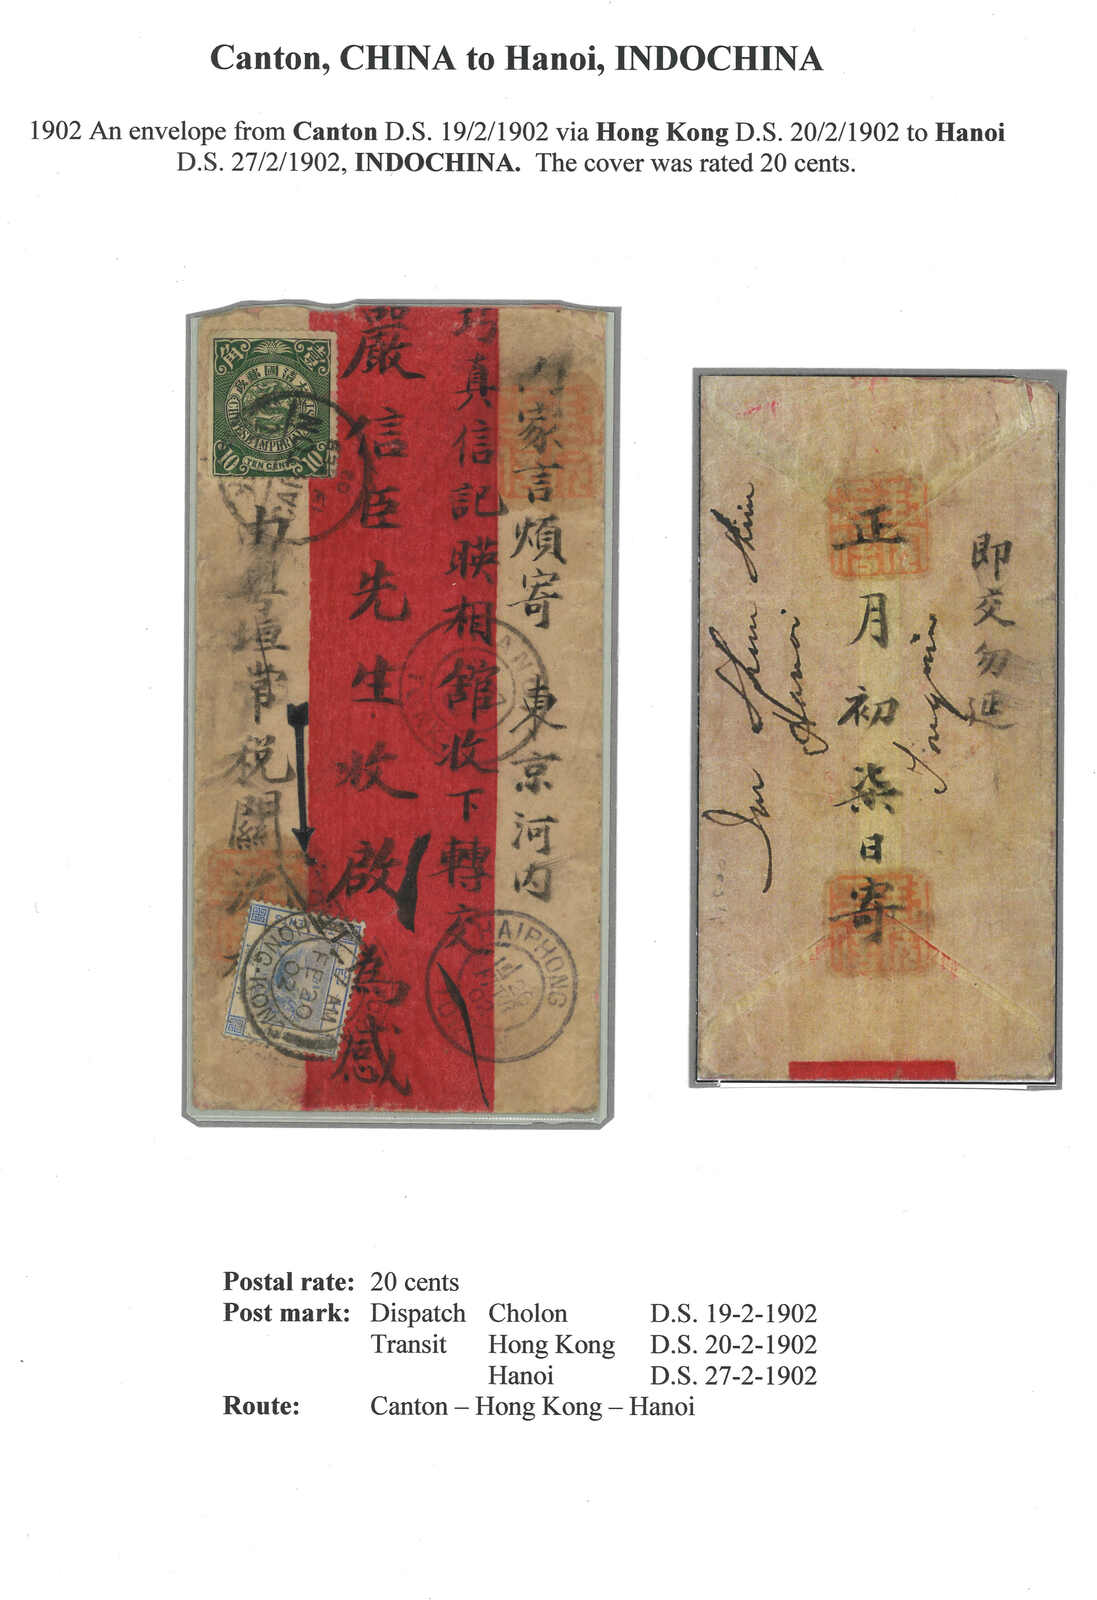 Canton, CHINA to Hanoi, INDOCHINA
1902 An envelope from Canton D.S. 19/2/1902 via Hong Kong D.S. 20/2/1902 to Hanoi
D.S. 27/2/1902, INDOCHINA. The cover was rated 20 cents.
家言煩寄 東京河内
真信記映相舘收下轉交
嚴信臣先生收啟為感
埠常稅關
角壹
大清國郵政
10 TEN CENTS 10
HONG-KONG
FE 20
02
HAIPHONG
即交勿延
正月初柒日寄
Hanoi
Postal rate: 20 cents
Post mark: Dispatch Cholon D.S. 19-2-1902
Transit Hong Kong D.S. 20-2-1902
Hanoi D.S. 27-2-1902
Route: Canton – Hong Kong – Hanoi